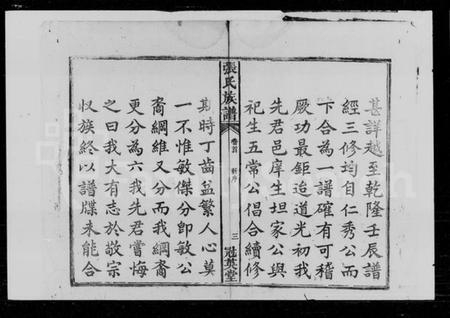 甚詳越至乾隆壬辰譜
經三修均自仁秀公而
下合為一譜確有可稽
厥功最鉅迨道光初我
先君邑庠生坦家公與
祀生五常公倡合續修
張氏族譜 卷首 新序 三 冠英堂
斯時丁齒益繁人心莫
一不惟敏傑分即敏公
裔綱維又分而我綱裔
更分為六我先君嘗悔
之曰我大有志於敬宗
収族終以譜牒未能合